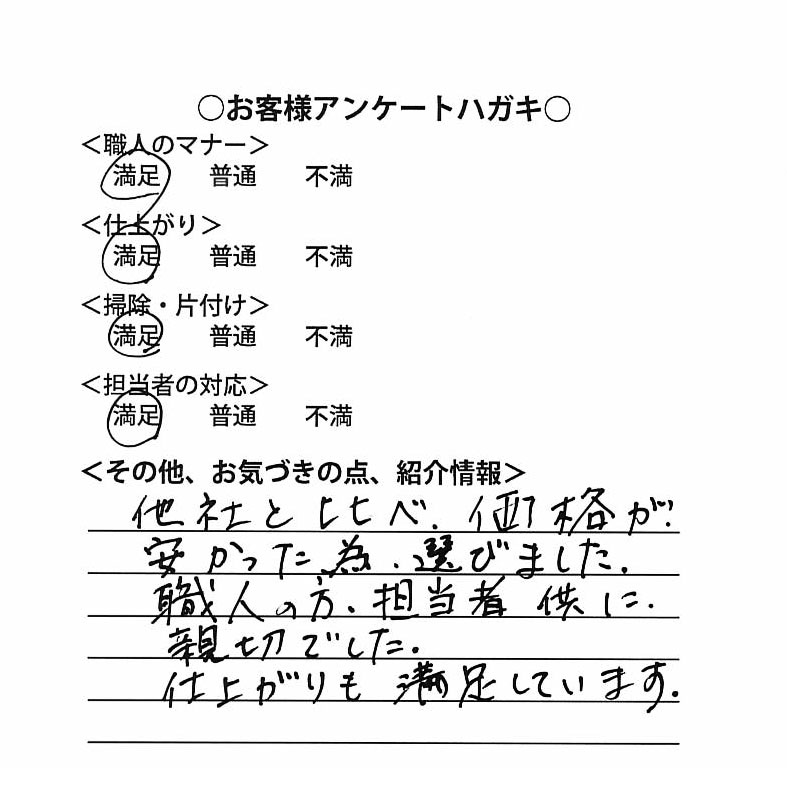 ○お客様アンケートハガキ○
＜職人のマナー＞
満足 普通 不満
＜仕上がり＞
満足 普通 不満
＜掃除・片付け＞
満足 普通 不満
＜担当者の対応＞
満足 普通 不満
＜その他、お気づきの点、紹介情報＞
他社と比べ、価格が
安かった為、選びました。
職人の方、担当者供に、
親切でした。
仕上がりも満足しています。